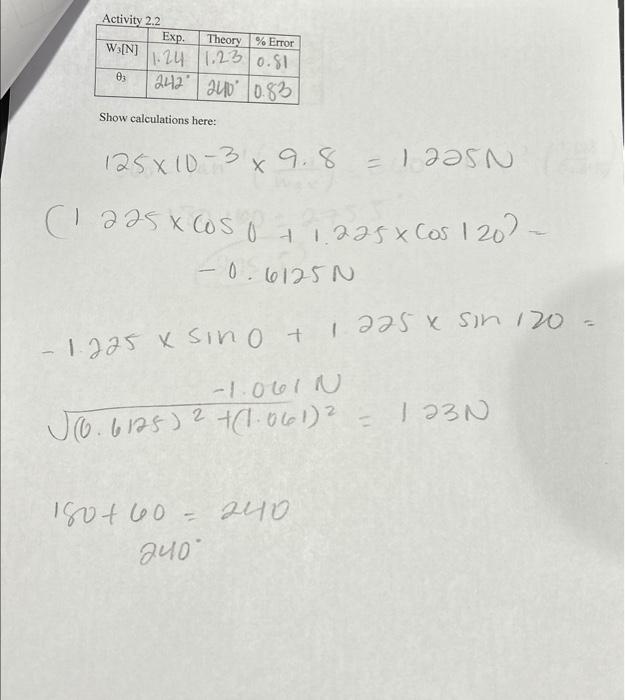 Activity 2.2
Exp. Theory % Error
W₃[N] 1.24 1.23 0.81
θ₃ 242° 240° 0.83
Show calculations here:
125×10⁻³ × 9.8 = 1.225N
(1.225 × cos 0 + 1.225 × cos 120) =
-0.6125N
-1.225 × sin 0 + 1.225 × sin 120 =
-1.061N
√(0.6125)² +(1.061)² = 1.23N
180+60 = 240
240°